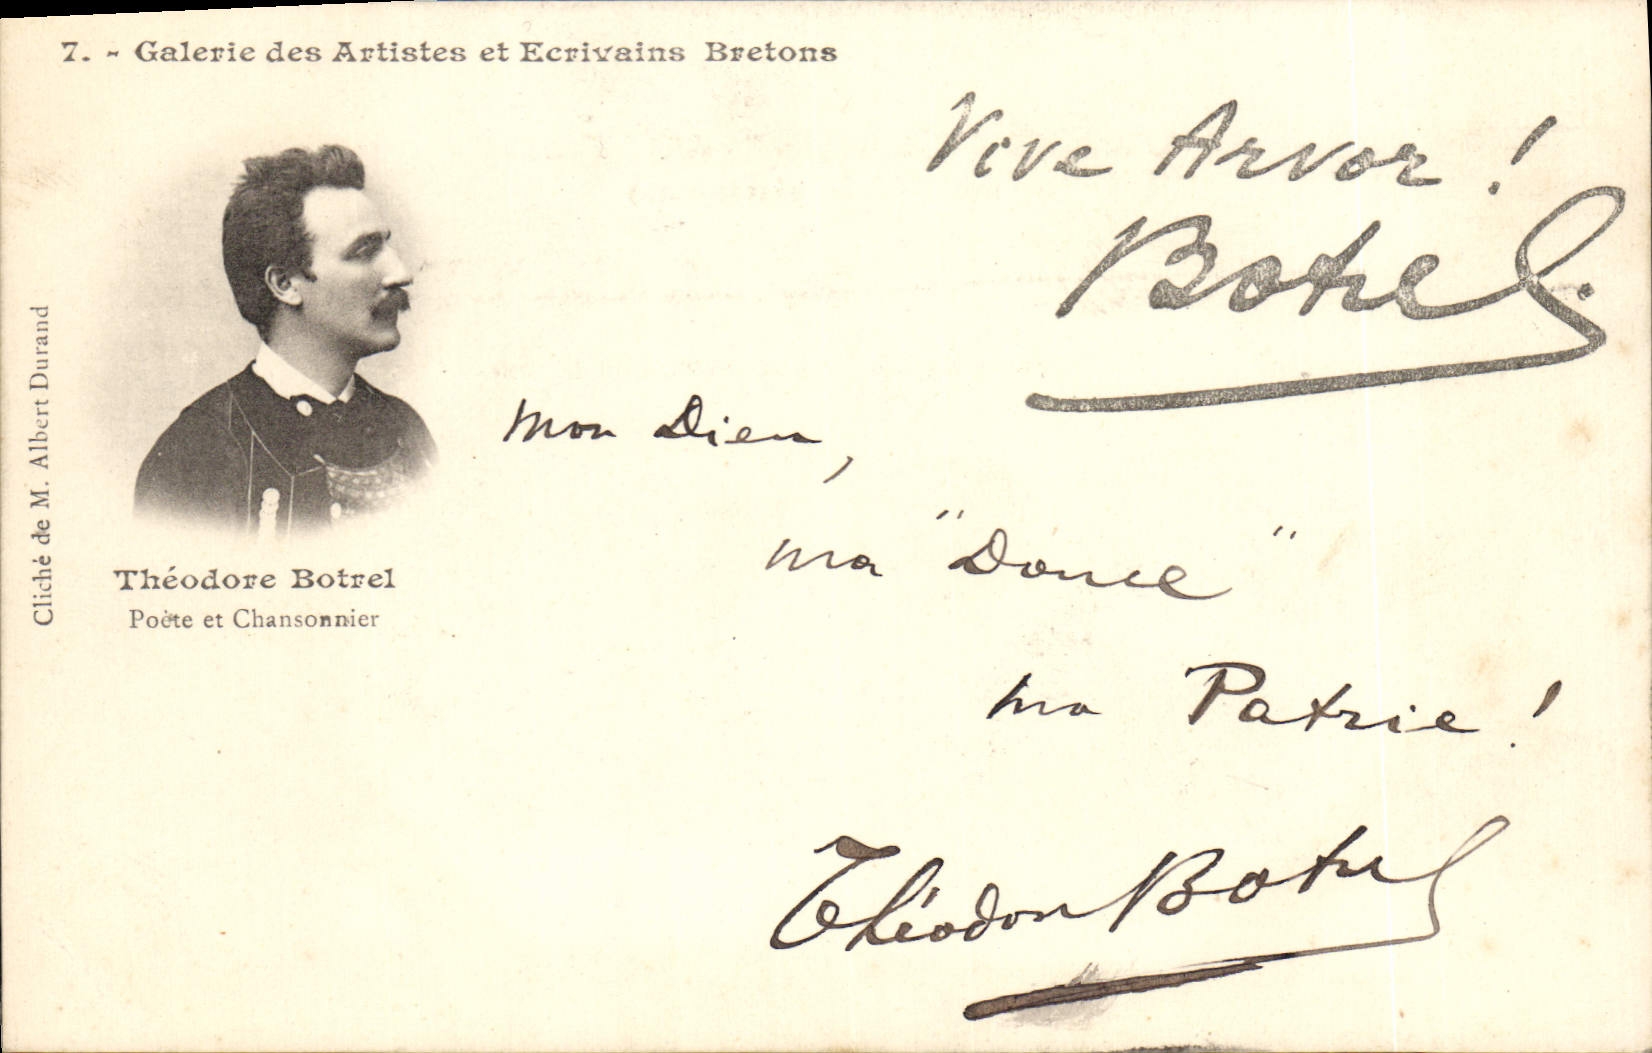 7. - Galerie des Artistes et Ecrivains Bretons
Vive Arvor !
Botrel.
Cliché de M. Albert Durand
Mon Dieu,
ma "Douce"
ma Patrie !
Théodore Botrel
Poète et Chansonnier
Théodore Botrel